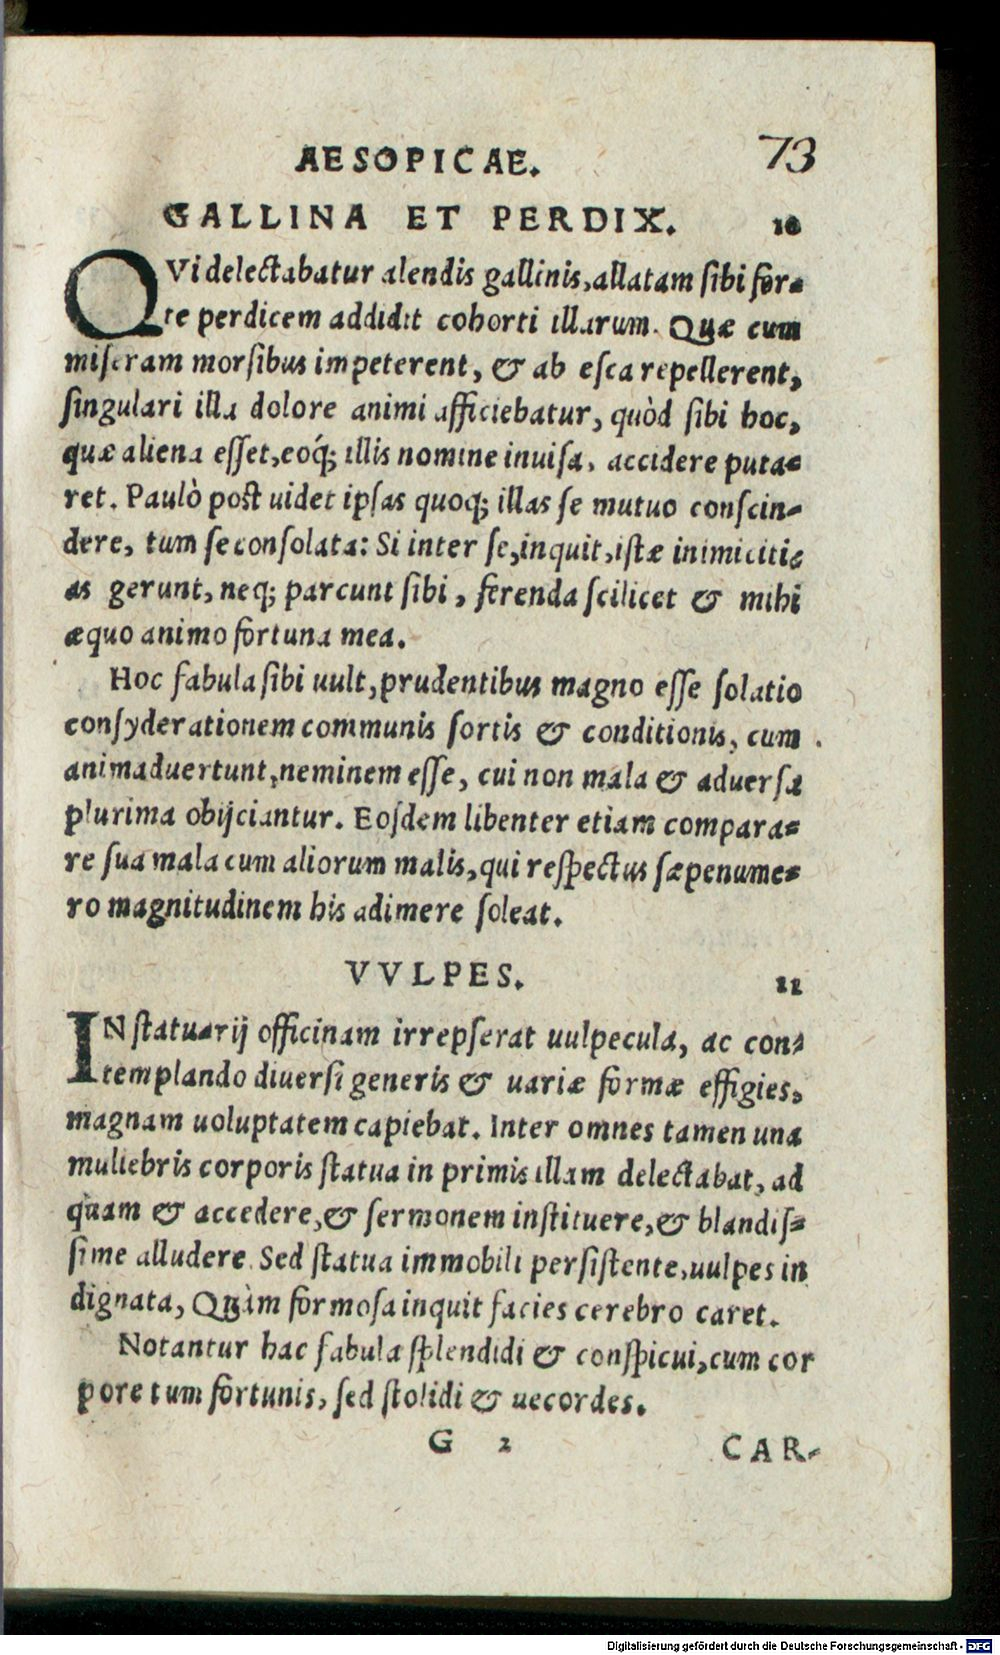 AESOPICAE. 73
GALLINA ET PERDIX. 10
QVi delectabatur alendis gallinis, allatam sibi for-
te perdicem addidit cohorti illarum. Quæ cum
miseram morsibus impeterent, & ab esca repellerent,
singulari illa dolore animi afficiebatur, quòd sibi hoc,
quæ aliena esset, eóq; illis nomine inuisa, accidere puta-
ret. Paulò post uidet ipsas quoq; illas se mutuo conscin-
dere, tum se consolata: Si inter se, inquit, istæ inimiciti-
as gerunt, neq; parcunt sibi, ferenda scilicet & mihi
æquo animo fortuna mea.
Hoc fabula sibi uult, prudentibus magno esse solatio
consyderationem communis sortis & conditionis, cum
animaduertunt, neminem esse, cui non mala & aduersa
plurima obijciantur. Eosdem libenter etiam compara-
re sua mala cum aliorum malis, qui respectus sæpenume-
ro magnitudinem his adimere soleat.
VVLPES. 11
IN statuarij officinam irrepserat uulpecula, ac con-
templando diuersi generis & uariæ formæ effigies,
magnam uoluptatem capiebat. Inter omnes tamen una
muliebris corporis statua in primis illam delectabat, ad
quam & accedere, & sermonem instituere, & blandis-
sime alludere. Sed statua immobili persistente, uulpes in
dignata, Quàm formosa inquit facies cerebro caret.
Notantur hac fabula splendidi & conspicui, cum cor
pore tum fortunis, sed stolidi & uecordes.
G 2 CAR-
Digitalisierung gefördert durch die Deutsche Forschungsgemeinschaft - DFG